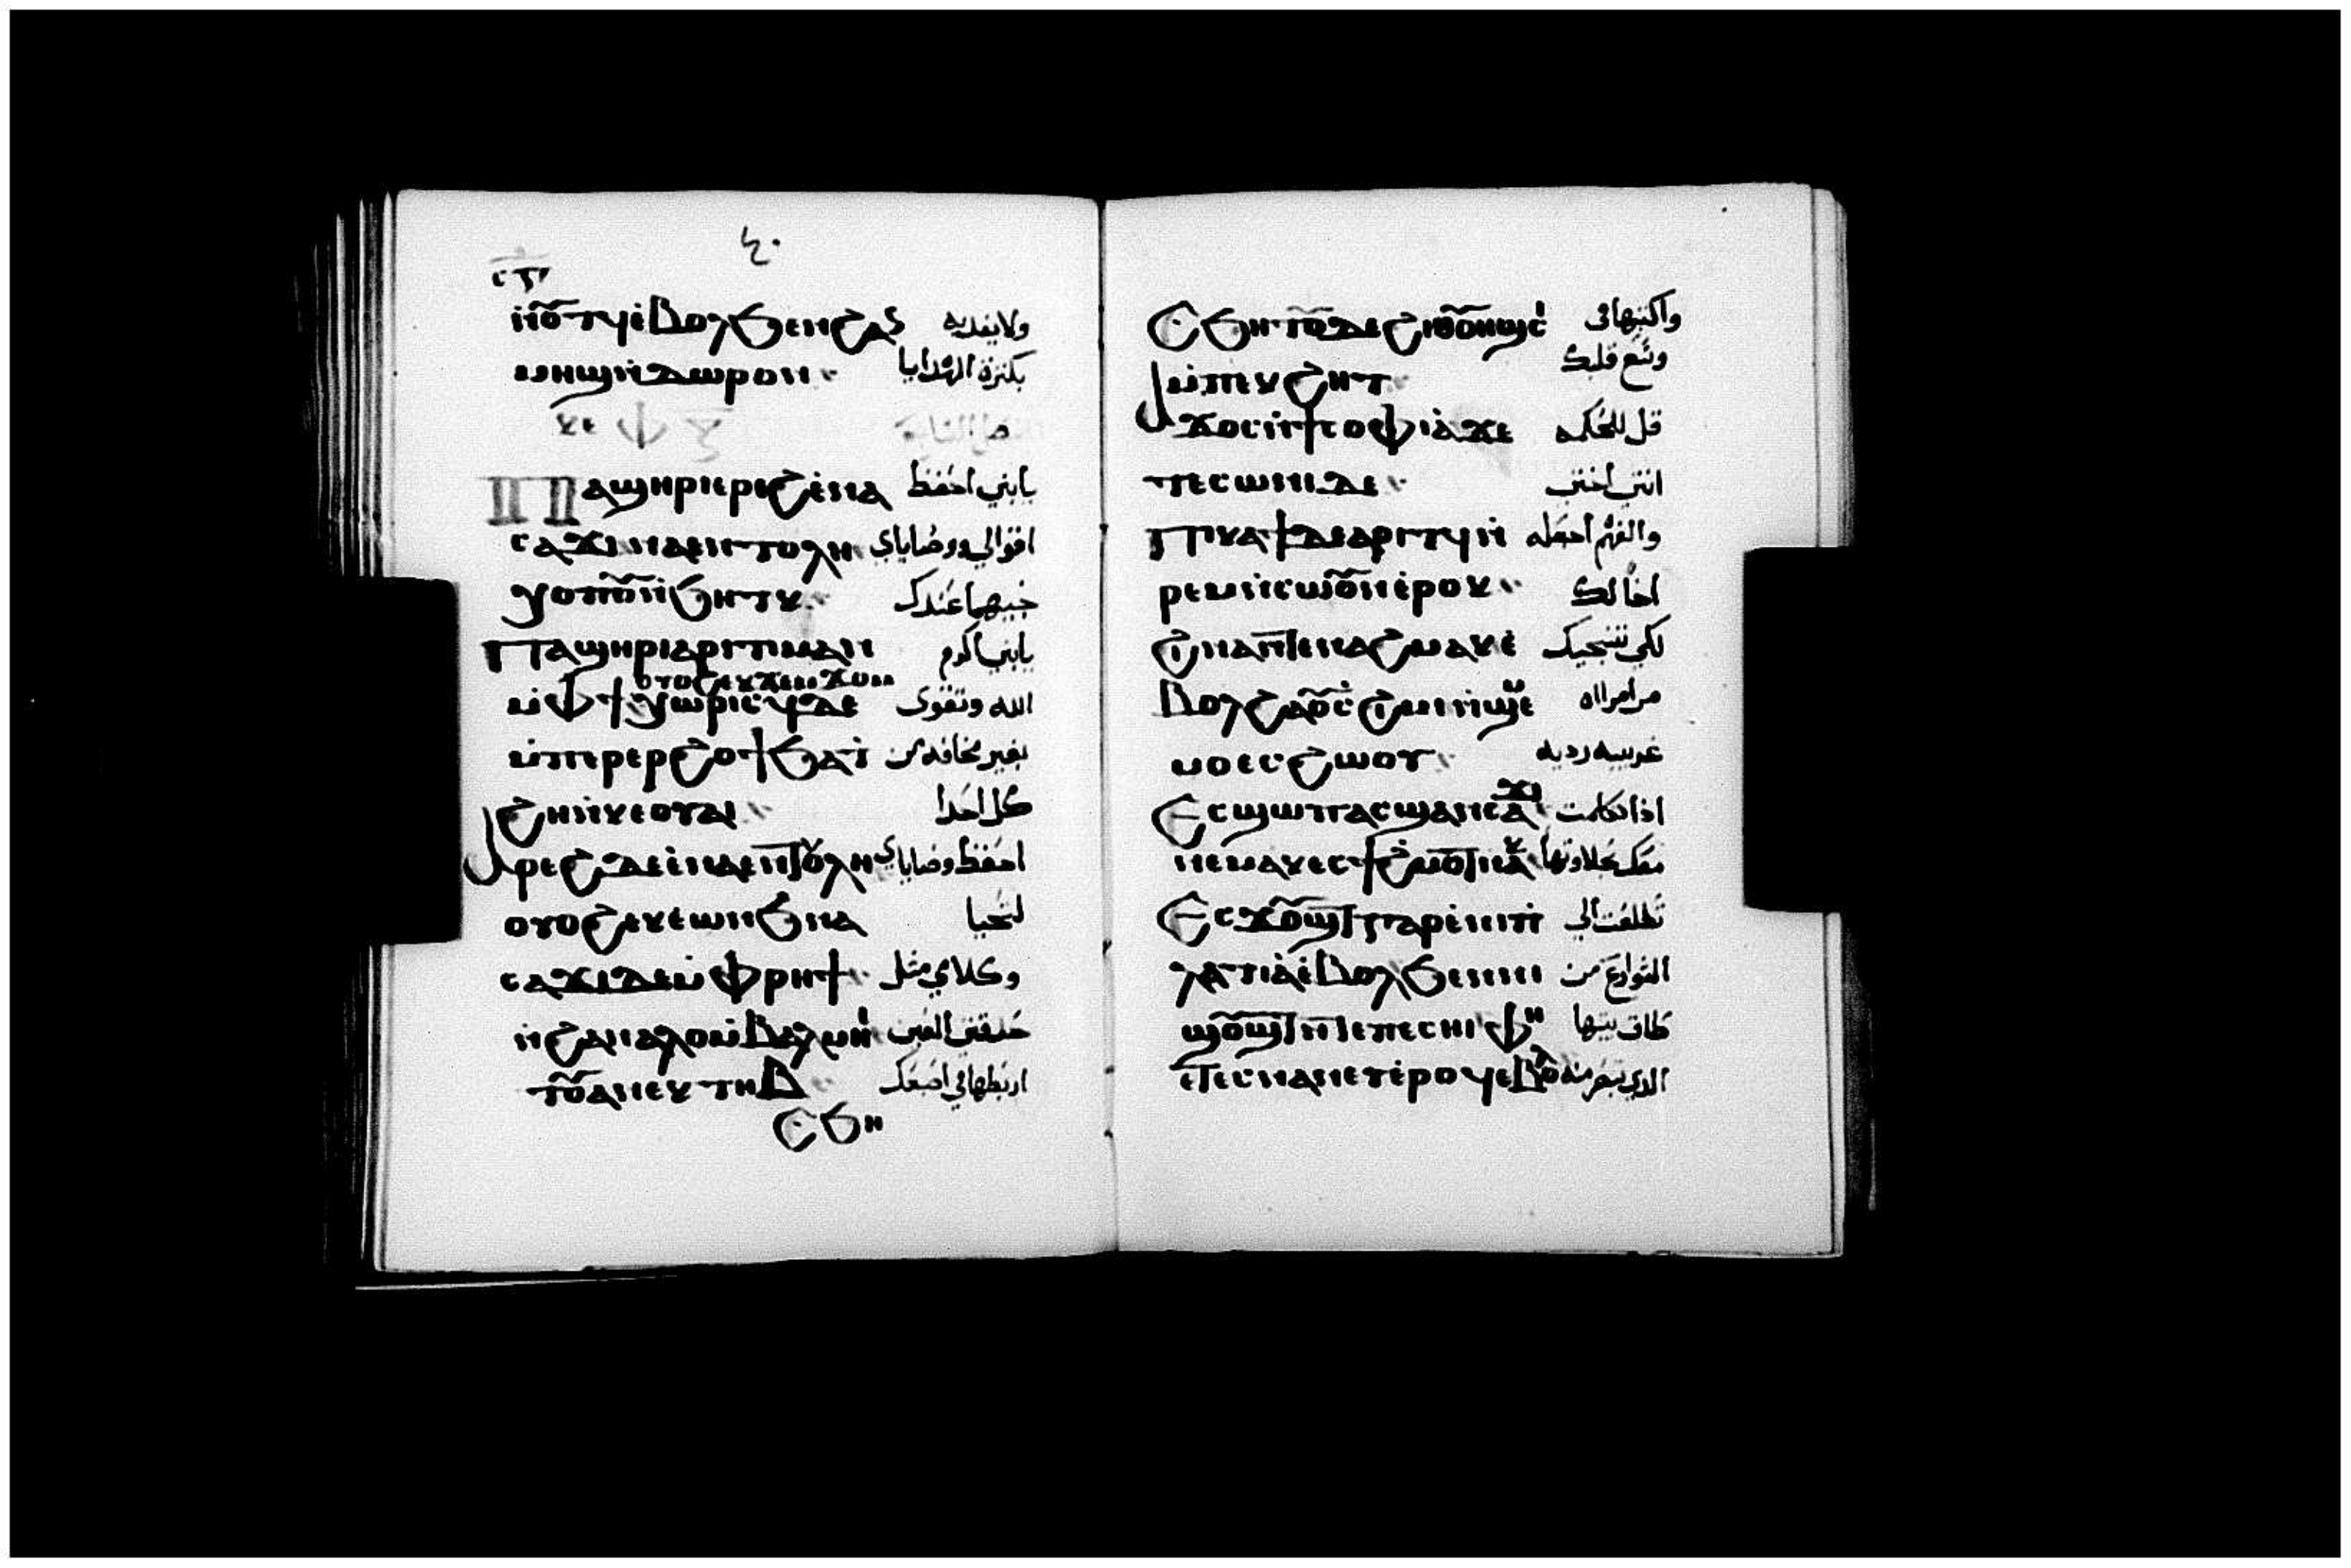 ٤٠
ⲛ̀ⲟⲩⲧϥ ⲉ̀ⲃⲟⲗ ϧⲉⲛ ϩⲁⲛ ولا يفديه
ⲙⲏϣ ⲛ̀ⲇⲱⲣⲟⲛ بكثرة الهدايا
ⲡⲁϣⲏⲣⲓ ⲉⲣⲉϩ ⲉ̀ⲛⲁ يا بني احفظ
ⲥⲁϫⲓ ⲛⲁⲉⲛⲧⲟⲗⲏ اقوالي ووصاياي
ⲭⲟⲡⲟⲩ ⲛ̀ϧⲏⲧⲕ خبيهما عندك
ⲡⲁϣⲏⲣⲓ ⲁⲣⲓⲧⲓⲙⲁⲛ يا بني اكرم
ⲟⲩⲟϩ ⲉⲕϫⲉⲙϫⲟⲙ
ⲙ̀ⲫϯ ⲭⲱⲣⲓⲥ ϥ ⲇⲉ الله وتتقوى
ⲙ̀ⲡⲉⲣⲉⲣϩⲟϯ ϧⲁⲧ بغير مخافه من
ϩⲏ ⲛ̀ⲕⲉⲟⲩⲁⲓ كل احدا
ⲁⲣⲉϩ ⲇⲉ ⲉ̀ⲛⲁⲉⲛⲧⲟⲗⲏ احفظ وصاياي
ⲟⲩⲟϩ ⲉⲕⲉ̀ⲱⲛϧ ⲛⲁ لتحيا
ⲥⲁϫⲓ ⲇⲉ ⲙ̀ⲫⲣⲏϯ وكلامي مثل
ⲛ̀ϩⲁⲛⲁⲗⲟⲩ ⲙ̀ⲃⲁⲗ ⲙⲏ حدقتي العين
ⲧⲟⲩ ⲁⲛⲉⲕⲧⲏⲃ اربطها في اصبعك
ⲥϧⲏ
ⲥϧⲏⲧⲟⲩ ⲇⲉ ϩⲓ ⲑⲟⲩⲏϣⲥⲓ واكتبها في
ⲙ̀ⲡⲉⲕϩⲏⲧ وسع قلبك
ⲁϫⲟⲥ ⲛ̀ϯⲥⲟⲫⲓⲁ̀ ϫⲉ قل للحكمه
ⲧⲉⲥⲱⲛⲓ ⲇⲉ انتي اختي
ⲡⲓⲕⲁϯ ⲇⲉ ⲁⲣⲓⲧϥ ⲛ̀ والفهم اجعله
ⲣⲉⲙⲛ̀ⲥⲱⲟⲩⲛ ⲉ̀ⲣⲟⲕ اخا لك
ϩⲓⲛⲁ ⲛ̀ⲧⲉⲛⲁϩⲙⲁⲕ ⲉ̀ لكي تنجيك
ⲃⲟⲗ ϩⲁ ⲟⲩⲥϩⲓⲙⲓ ⲛ̀ϣⲉⲙ من امراه
ⲙⲟ ⲉⲥϩⲱⲟⲩ غريبه رديه
ⲉⲥϣⲱⲡ ⲁⲥϣⲁⲛⲥⲁϫⲓ اذا تكلمت
ⲛⲉⲙⲁⲕ ⲉⲥϯϩⲙⲟⲧ ⲛⲁⲕ معك بحلاوتها
ⲉⲥϫⲟⲩϣⲧ ⲅⲁⲣ ⲉ̀ⲛⲓⲡⲓ تطلعت الي
ⲗⲁⲧⲓⲁ̀ ⲉ̀ⲃⲟⲗ ϧⲉⲛ ⲛⲓ الشوارع من
ϣⲟⲩϣⲧ ⲛ̀ⲧⲉ ⲡⲉⲥⲏⲓ ⲫⲏ طاق بيتها
ⲉⲧⲉⲥⲛⲁⲛⲉⲧ ⲉ̀ⲣⲟϥ ⲉⲃⲟⲗ الذي تبصر منه